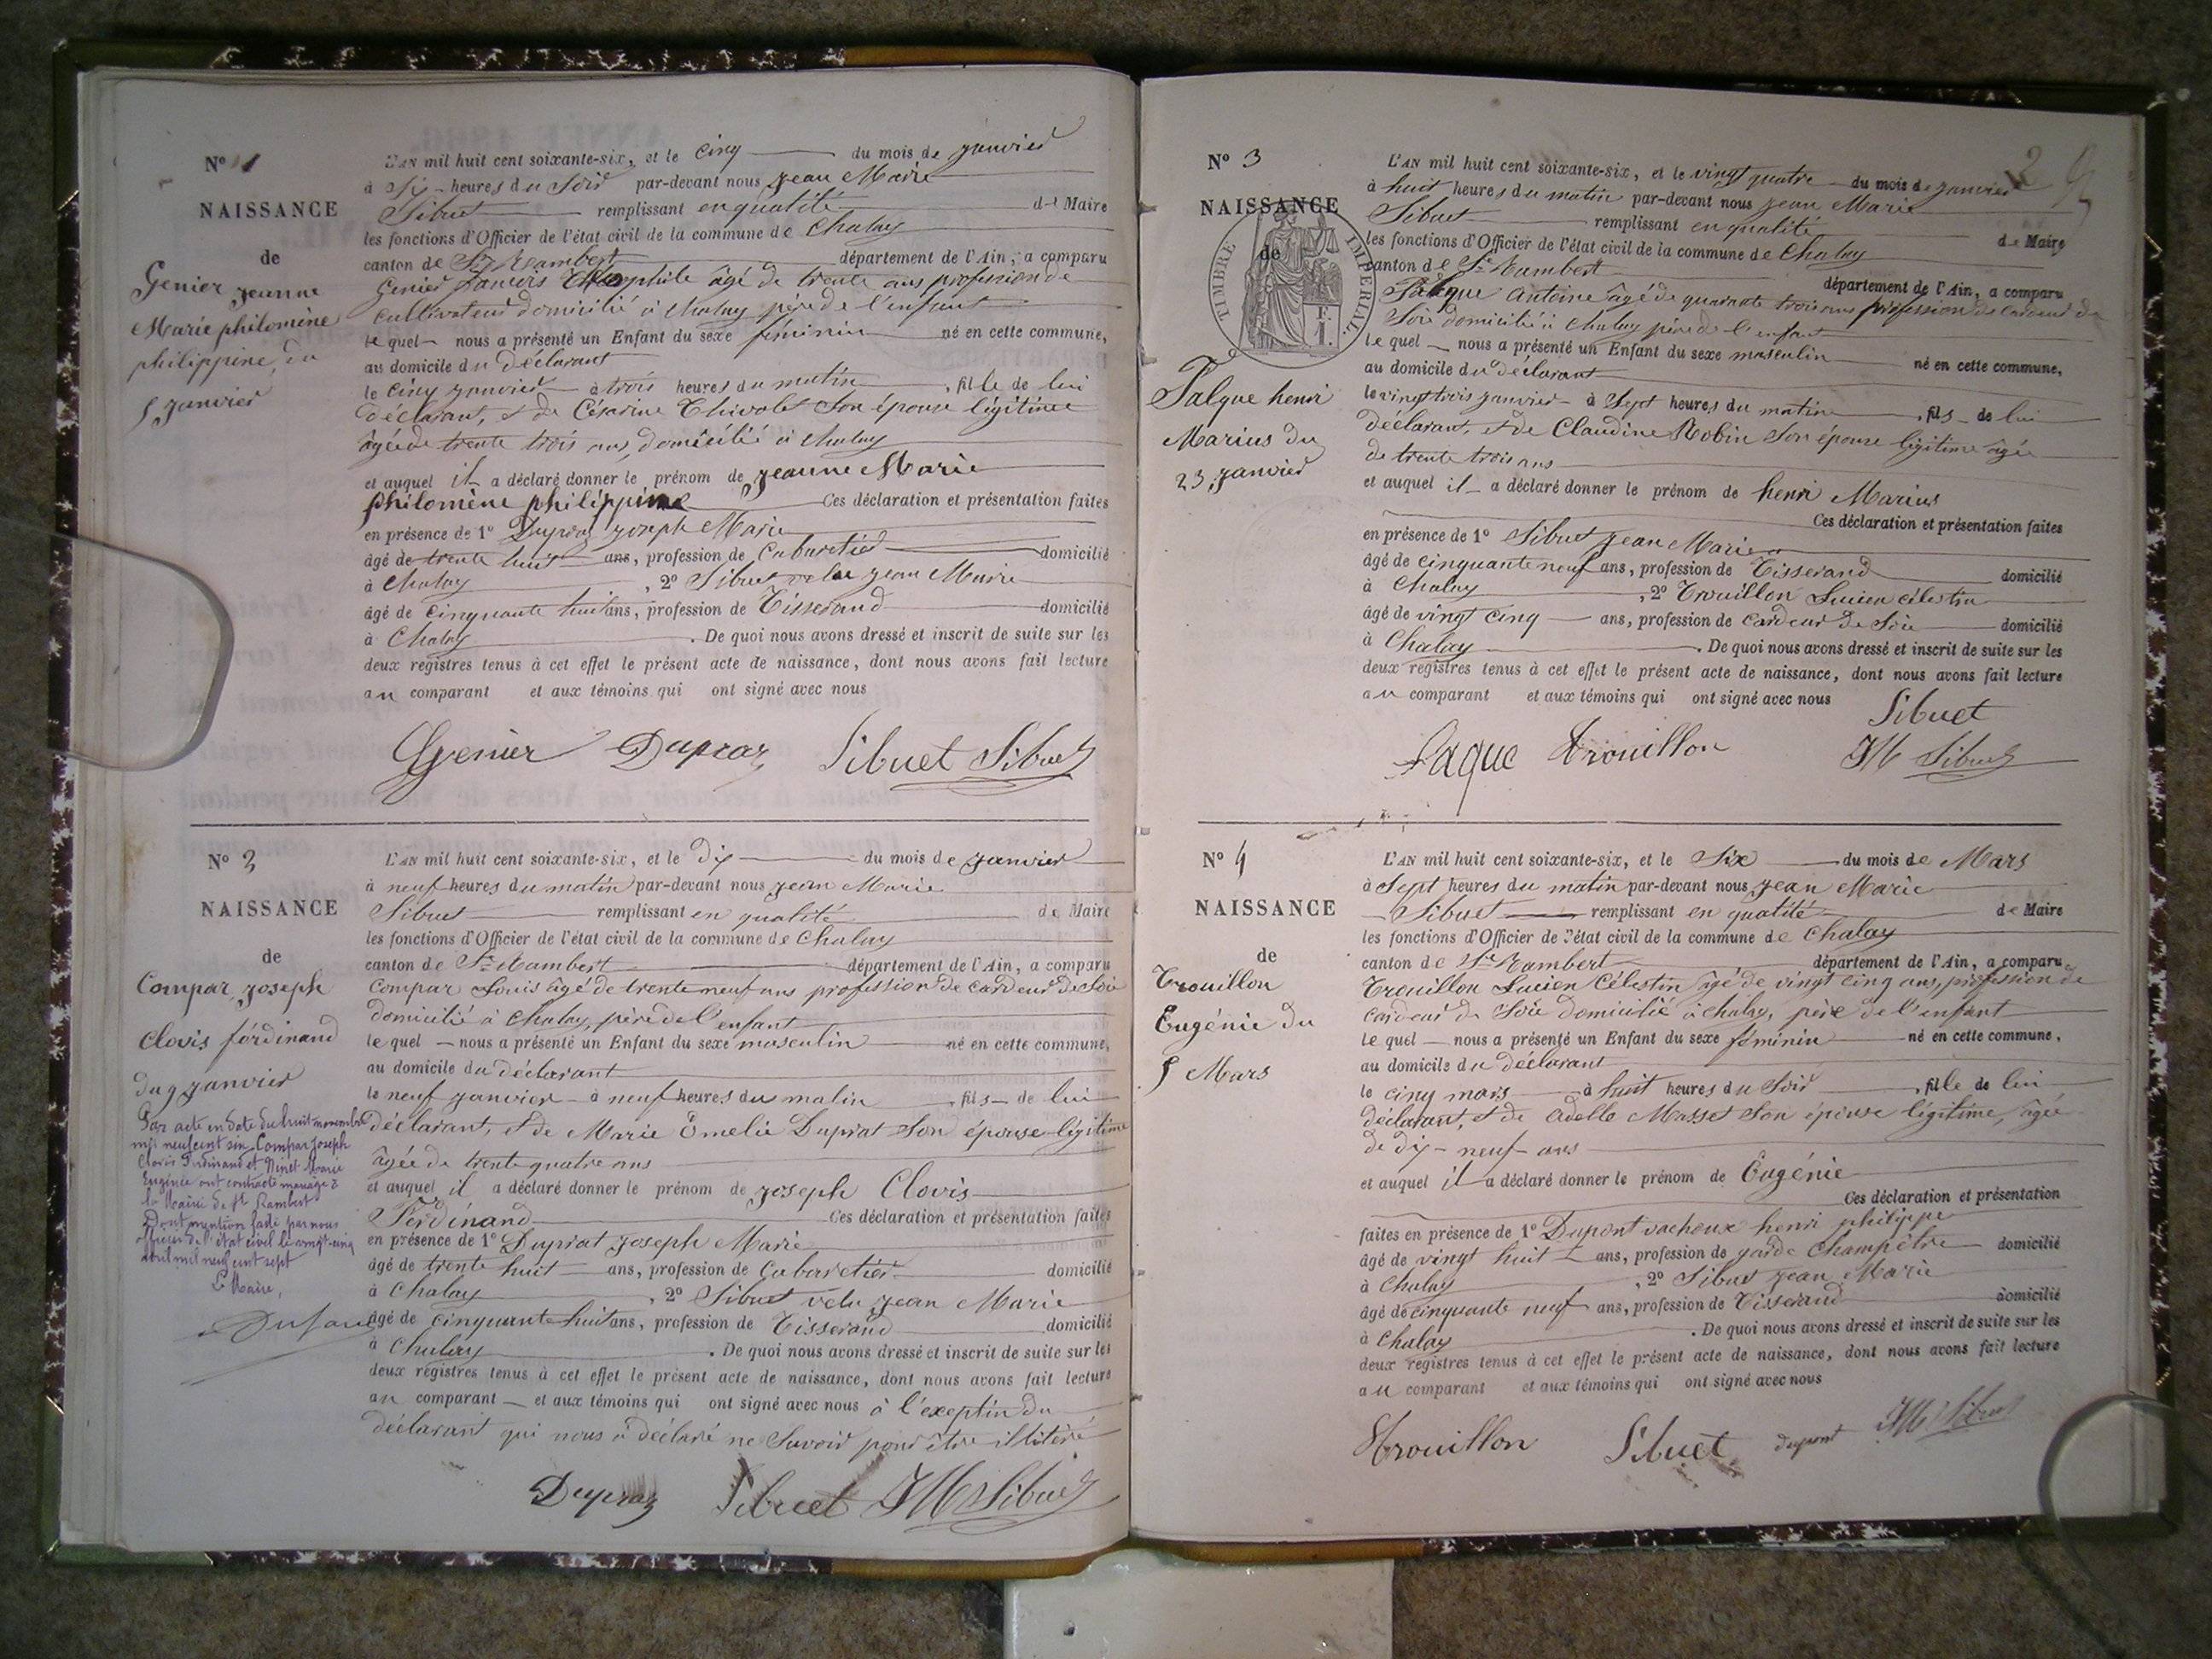 N° 1
NAISSANCE
de
Genier Jeanne
Marie philomène
philippine, du
5 janvier
L'AN mil huit cent soixante-six, et le cinq du mois de janvier
à Six heures du Soir par-devant nous Jean Marie
Sibuet remplissant en qualité de Maire
les fonctions d'Officier de l'état civil de la commune de Chaley
canton de St Rambert département de l'Ain, a comparu
Genier âgé de trente ans profession de
cultivateur domicilié à Chaley père de l'enfant
le quel nous a présenté un Enfant du sexe féminin né en cette commune,
au domicile du déclarant
le cinq janvier à trois heures du matin, fille de lui
déclarant, et de Césarine Chivolet son épouse légitime
âgée de trente trois ans, domicilié à Chaley
et auquel il a déclaré donner le prénom de Jeanne Marie
philomène philippine Ces déclaration et présentation faites
en présence de 1° Dupraz Joseph Marie
âgé de trente huit ans, profession de Cabaretier domicilié
à Chaley, 2° Sibuet velu Jean Marie
âgé de cinquante huit ans, profession de Tisserand domicilié
à Chaley. De quoi nous avons dressé et inscrit de suite sur les
deux registres tenus à cet effet le présent acte de naissance, dont nous avons fait lecture
au comparant et aux témoins qui ont signé avec nous
Genier Dupraz Sibuet Sibuet
N° 2
NAISSANCE
de
Compar Joseph
Clovis ferdinand
du 9 janvier
Par acte en date du huit novembre
mil neuf cent six Compar Joseph
Clovis Ferdinand et Ninet Marie
Eugénie ont contracté mariage à
la Mairie de St Rambert
Dont mention faite par nous
officier de l'état civil le vingt-cinq
avril mil neuf cent sept
Le Maire,
L'AN mil huit cent soixante-six, et le dix du mois de janvier
à neuf heures du matin par-devant nous Jean Marie
Sibuet remplissant en qualité de Maire
les fonctions d'Officier de l'état civil de la commune de Chaley
canton de St Rambert département de l'Ain, a comparu
Compar Louis âgé de trente neuf ans profession de cardeur de Soie
domicilié à Chaley, père de l'enfant
le quel nous a présenté un Enfant du sexe masculin né en cette commune,
au domicile du déclarant
le neuf janvier à neuf heures du matin, fils de lui
déclarant, et de Marie Emelie Duprat son épouse légitime
âgée de trente quatre ans
et auquel il a déclaré donner le prénom de Joseph Clovis
Ferdinand Ces déclaration et présentation faites
en présence de 1° Duprat Joseph Marie
âgé de trente huit ans, profession de Cabaretier domicilié
à Chaley, 2° Sibuet velu Jean Marie
âgé de cinquante huit ans, profession de Tisserand domicilié
à Chaley. De quoi nous avons dressé et inscrit de suite sur les
deux registres tenus à cet effet le présent acte de naissance, dont nous avons fait lecture
au comparant et aux témoins qui ont signé avec nous à l'exeptin du
déclarant qui nous a déclaré ne Savoir pour être illitéré
Dupraz Sibuet JM Sibuet
2
N° 3
NAISSANCE
de
TIMBRE IMPERIAL
F.
1.
Palque henri
Marius du
23 janvier
L'AN mil huit cent soixante-six, et le vingt quatre du mois de janvier
à huit heures du matin par-devant nous Jean Marie
Sibuet remplissant en qualité de Maire
les fonctions d'Officier de l'état civil de la commune de Chaley
canton de St Rambert département de l'Ain, a comparu
Palque Antoine âgé de quarante trois ans profession de cardeur de
Soie domicilié à Chaley père de l'enfant
le quel nous a présenté un Enfant du sexe masculin né en cette commune,
au domicile du déclarant
le vingt trois janvier à Sept heures du matin, fils de lui
déclarant, et de Claudine Robin son épouse légitime âgée
de trente trois ans
et auquel il a déclaré donner le prénom de henri Marius
Ces déclaration et présentation faites
en présence de 1° Sibuet Jean Marie
âgé de cinquante neuf ans, profession de Tisserand domicilié
à Chaley, 2° Trouillon Lucien célestin
âgé de vingt cinq ans, profession de Cardeur de Soie domicilié
à Chaley. De quoi nous avons dressé et inscrit de suite sur les
deux registres tenus à cet effet le présent acte de naissance, dont nous avons fait lecture
au comparant et aux témoins qui ont signé avec nous
Sibuet
Paque Trouillon JM Sibuet
N° 4
NAISSANCE
de
Trouillon
Eugénie du
5 Mars
L'AN mil huit cent soixante-six, et le Six du mois de Mars
à Sept heures du matin par-devant nous Jean Marie
Sibuet remplissant en qualité de Maire
les fonctions d'Officier de l'état civil de la commune de Chaley
canton de St Rambert département de l'Ain, a comparu
Trouillon Lucien Célestin âgé de vingt cinq ans, profession de
cardeur de Soie domicilié à Chaley, père de l'enfant
le quel nous a présenté un Enfant du sexe féminin né en cette commune,
au domicile du déclarant
le cinq mars à huit heures du Soir, fille de lui
déclarant, et de Adelle Masset son épouse légitime, âgée
de dix-neuf ans
et auquel il a déclaré donner le prénom de Eugénie
Ces déclaration et présentation
faites en présence de 1° Dupont vacheux henri philippe
âgé de vingt huit ans, profession de garde Champêtre domicilié
à Chaley, 2° Sibuet Jean Marie
âgé de cinquante neuf ans, profession de Tisserand domicilié
à Chaley. De quoi nous avons dressé et inscrit de suite sur les
deux registres tenus à cet effet le présent acte de naissance, dont nous avons fait lecture
au comparant et aux témoins qui ont signé avec nous
Trouillon Sibuet dupont JM Sibuet